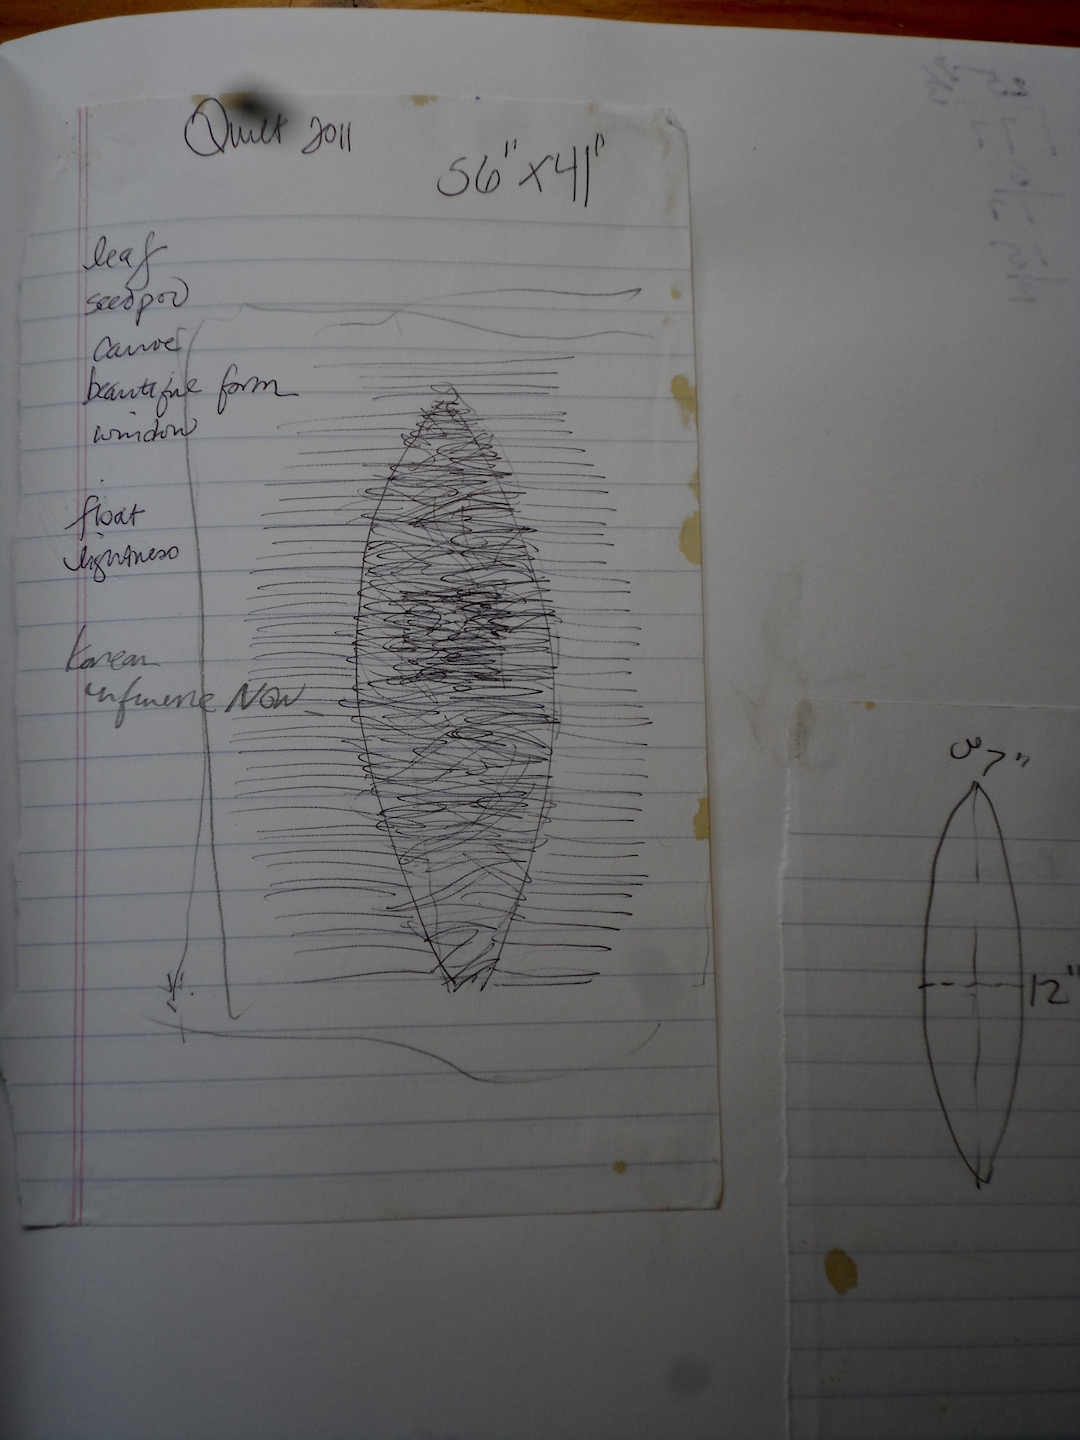 Quilt 2011
56" X 41"
leaf
seedpod
canoe
beautiful form
window
float
lightness
Korean
NOW
37"
12"